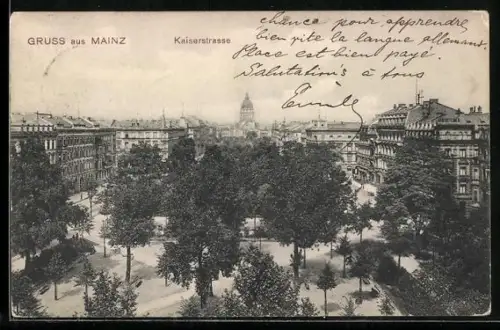 GRUSS aus MAINZ
Kaiserstrasse
chance pour apprendre
bien vite la langue allemans.
Place est bien payé.
Salutations à tous
Emile